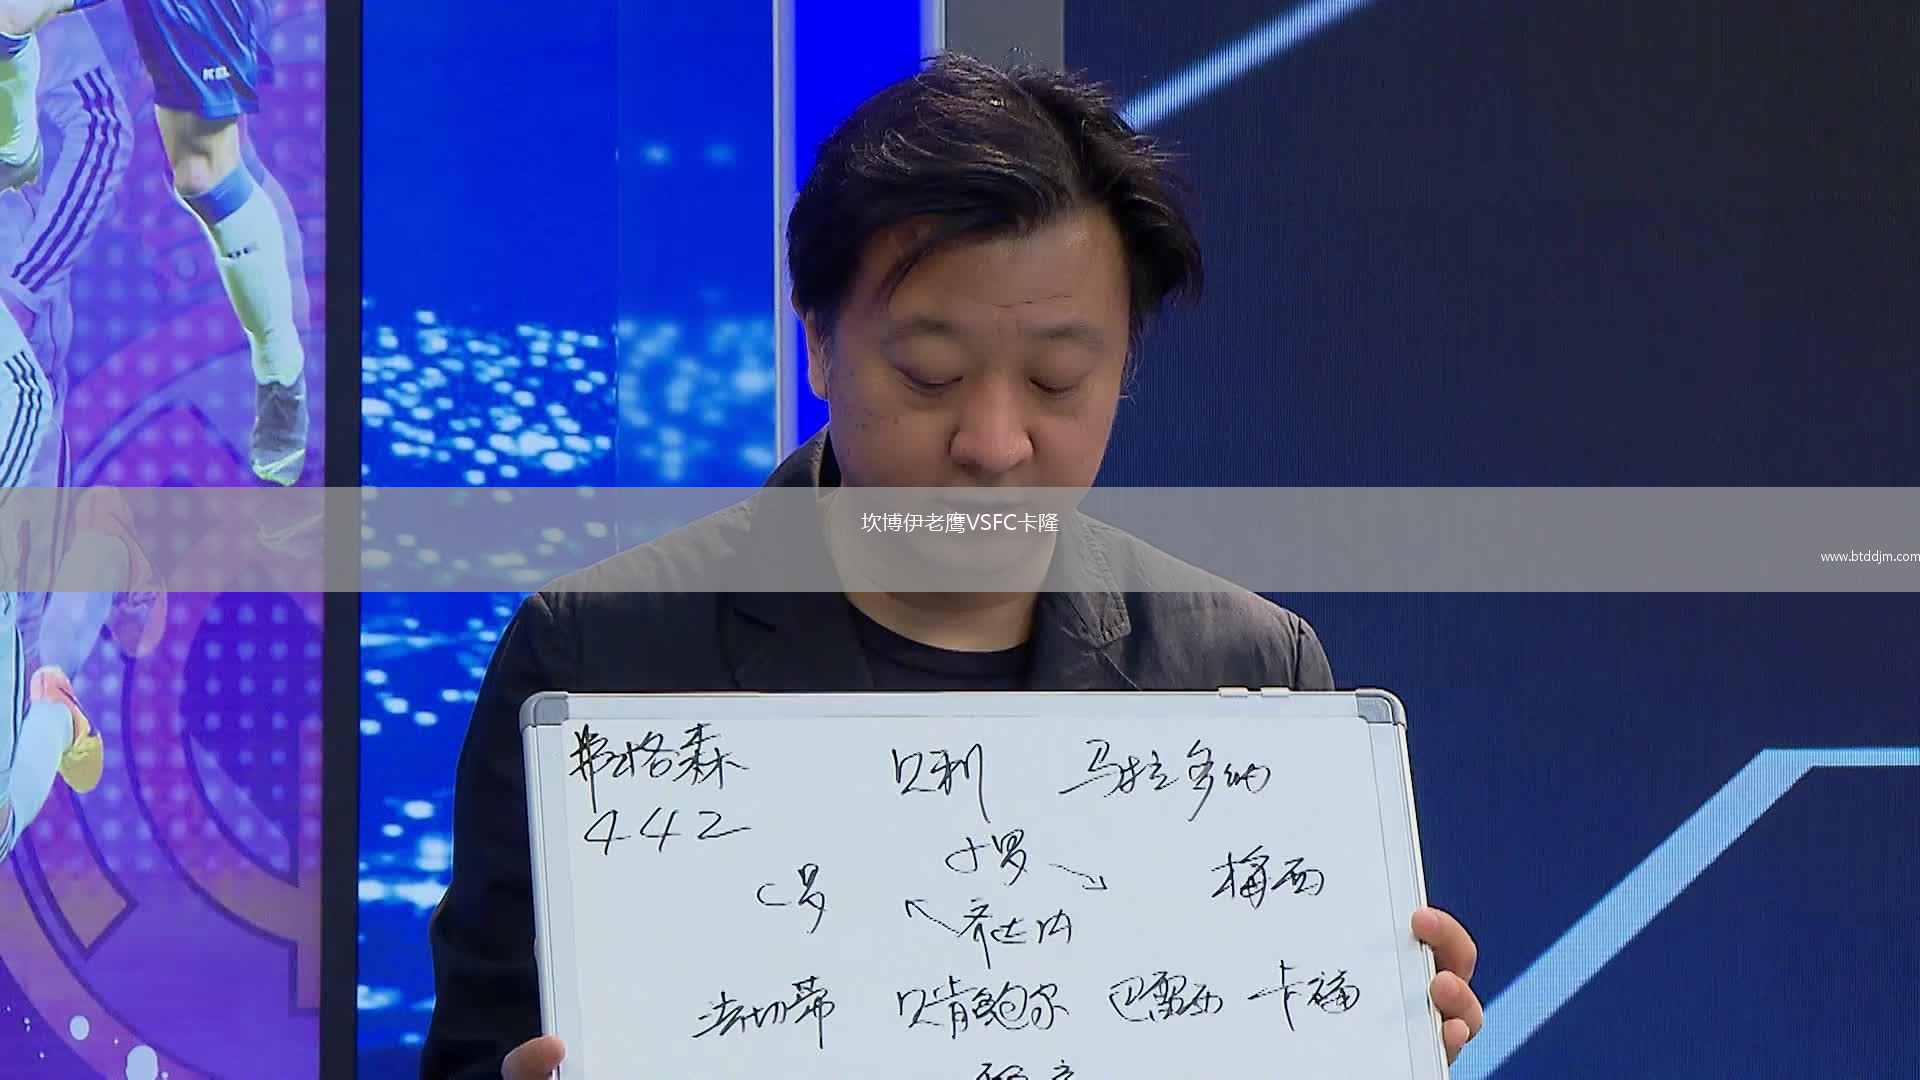 坎博伊老鹰VSFC卡隆
www.btddjm.com
弗格森 贝利 马拉多纳
442
小罗
C罗 梅西
齐达内
法切蒂 贝肯鲍尔 巴雷西 卡福